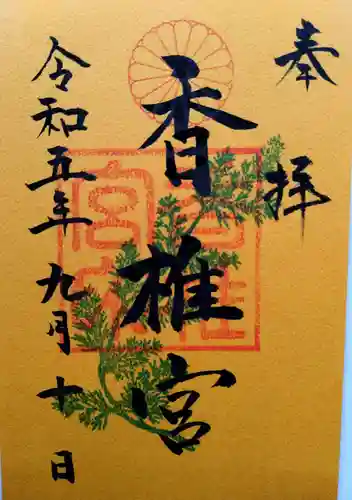 奉拝
香椎宮
令和五年九月十日